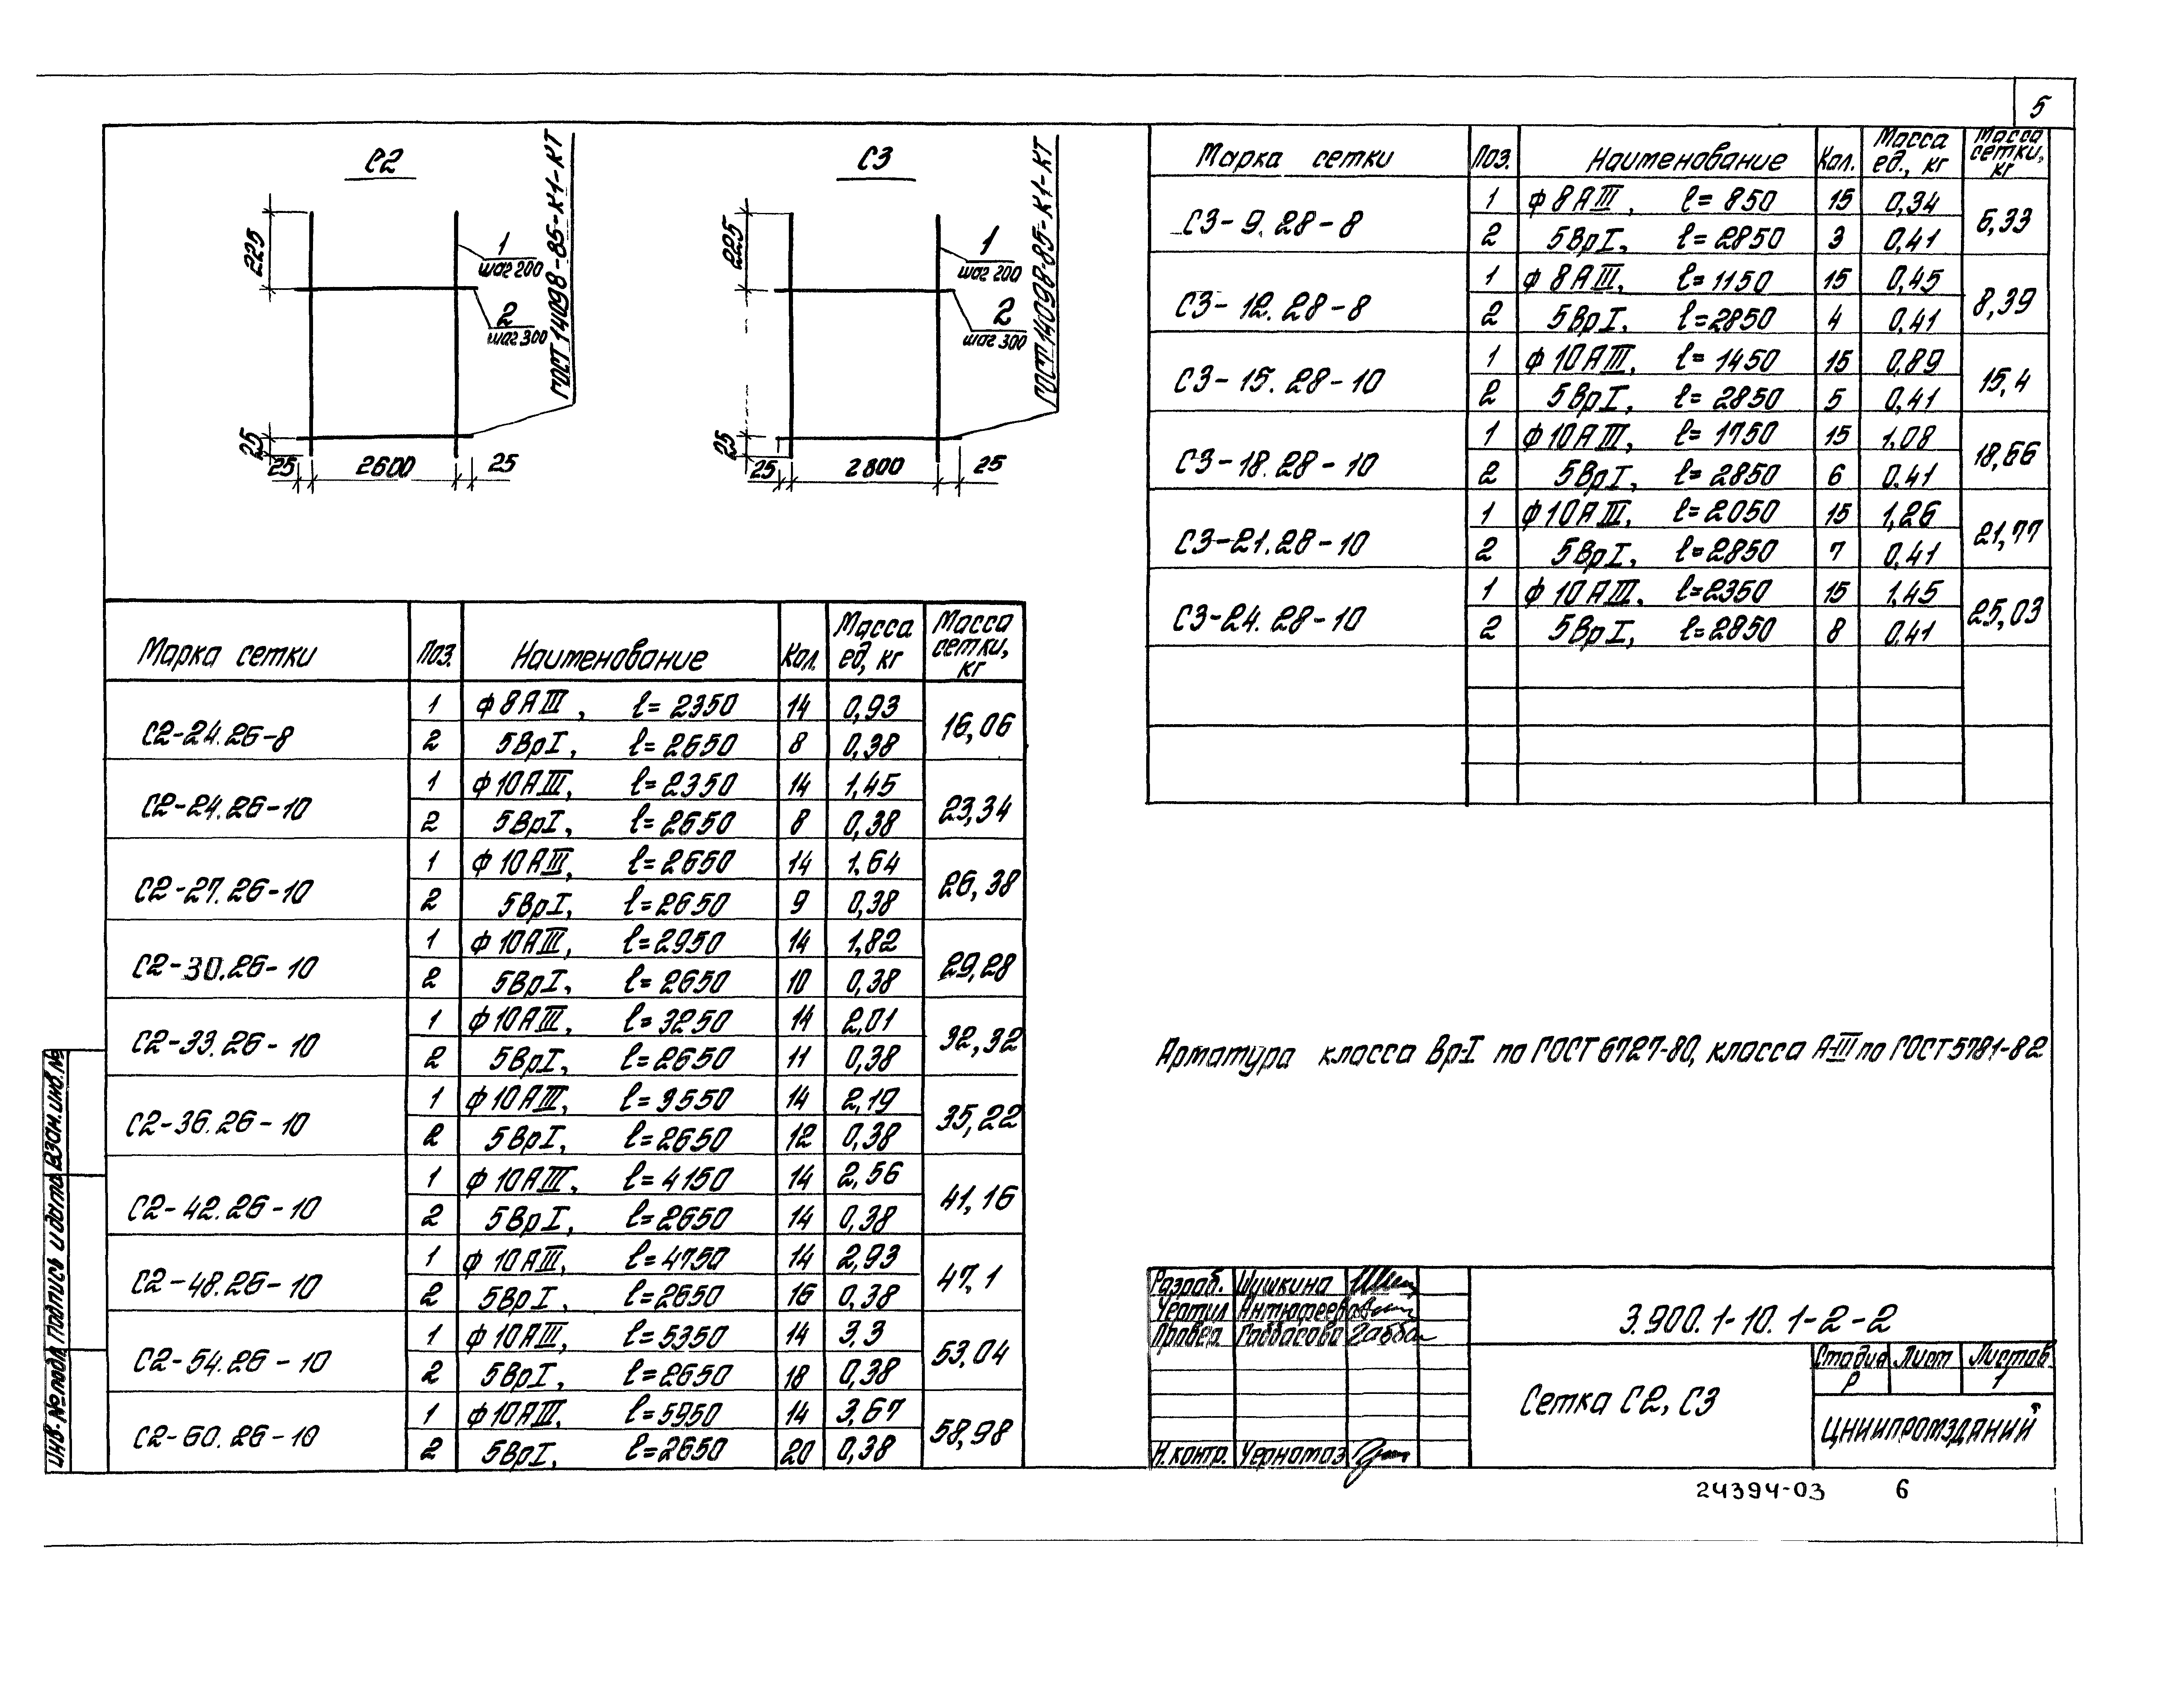 5
С2
225
25
25
2600
25
1
шаг 200
2
шаг 300
ГОСТ 14098-85-К1-КТ
С3
225
25
25
2800
25
1
шаг 200
2
шаг 300
ГОСТ 14098-85-К1-КТ
Марка сетки Поз. Наименование Кол. Масса ед., кг Масса сетки, кг
С2-24.26-8 1 ф8АIII, ℓ=2350 14 0,93 16,06
2 5ВрI, ℓ=2650 8 0,38
С2-24.26-10 1 ф10АIII, ℓ=2350 14 1,45 23,34
2 5ВрI, ℓ=2650 8 0,38
С2-27.26-10 1 ф10АIII, ℓ=2650 14 1,64 26,38
2 5ВрI, ℓ=2650 9 0,38
С2-30.26-10 1 ф10АIII, ℓ=2950 14 1,82 29,28
2 5ВрI, ℓ=2650 10 0,38
С2-33.26-10 1 ф10АIII, ℓ=3250 14 2,01 32,32
2 5ВрI, ℓ=2650 11 0,38
С2-36.26-10 1 ф10АIII, ℓ=3550 14 2,19 35,22
2 5ВрI, ℓ=2650 12 0,38
С2-42.26-10 1 ф10АIII, ℓ=4150 14 2,56 41,16
2 5ВрI, ℓ=2650 14 0,38
С2-48.26-10 1 ф10АIII, ℓ=4750 14 2,93 47,1
2 5ВрI, ℓ=2650 16 0,38
С2-54.26-10 1 ф10АIII, ℓ=5350 14 3,3 53,04
2 5ВрI, ℓ=2650 18 0,38
С2-60.26-10 1 ф10АIII, ℓ=5950 14 3,67 58,98
2 5ВрI, ℓ=2650 20 0,38
Марка сетки Поз. Наименование Кол. Масса ед., кг Масса сетки, кг
С3-9.28-8 1 ф8АIII, ℓ=850 15 0,34 6,33
2 5ВрI, ℓ=2850 3 0,41
С3-12.28-8 1 ф8АIII, ℓ=1150 15 0,45 8,39
2 5ВрI, ℓ=2850 4 0,41
С3-15.28-10 1 ф10АIII, ℓ=1450 15 0,89 15,4
2 5ВрI, ℓ=2850 5 0,41
С3-18.28-10 1 ф10АIII, ℓ=1750 15 1,08 18,66
2 5ВрI, ℓ=2850 6 0,41
С3-21.28-10 1 ф10АIII, ℓ=2050 15 1,26 21,77
2 5ВрI, ℓ=2850 7 0,41
С3-24.28-10 1 ф10АIII, ℓ=2350 15 1,45 25,03
2 5ВрI, ℓ=2850 8 0,41
Арматура класса Вр-I по ГОСТ 6727-80, класса А-III по ГОСТ 5781-82
Разраб. Шушкина
Чертил Антюфеева
Провер. Габбасова
Н.контр. Черномаз
3.900.1-10.1-2-2
Сетка С2, С3
Стадия Лист Листов
Р 1
ЦНИИПРОМЗДАНИЙ
Инв.№подл. Подпись и дата Взам.инв.№
24394-03 6